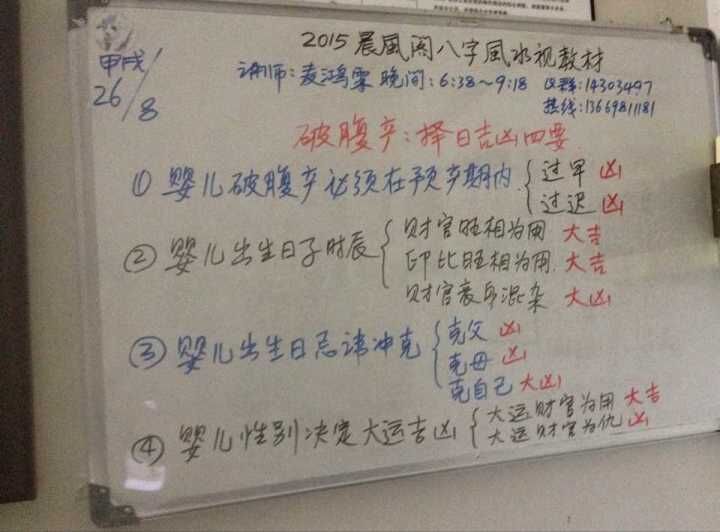 2015晨風阁八字風水视教材
甲戌
26/8
讲师:凌鸿霖 晚间:6:38~9:18 QQ群:14303497
热线:13669811181
破腹产:择日吉凶四要
① 婴儿破腹产必须在预产期内
过早 凶
过迟 凶
② 婴儿出生日子时辰
财官旺相为用 大吉
印比旺相为用. 大吉
财官衰气混杂 大凶
③ 婴儿出生日忌讳冲克
克父 凶
克母 凶
克自己 大凶
④ 婴儿性别决定大运吉凶
大运财官为用 大吉
大运财官为仇 凶